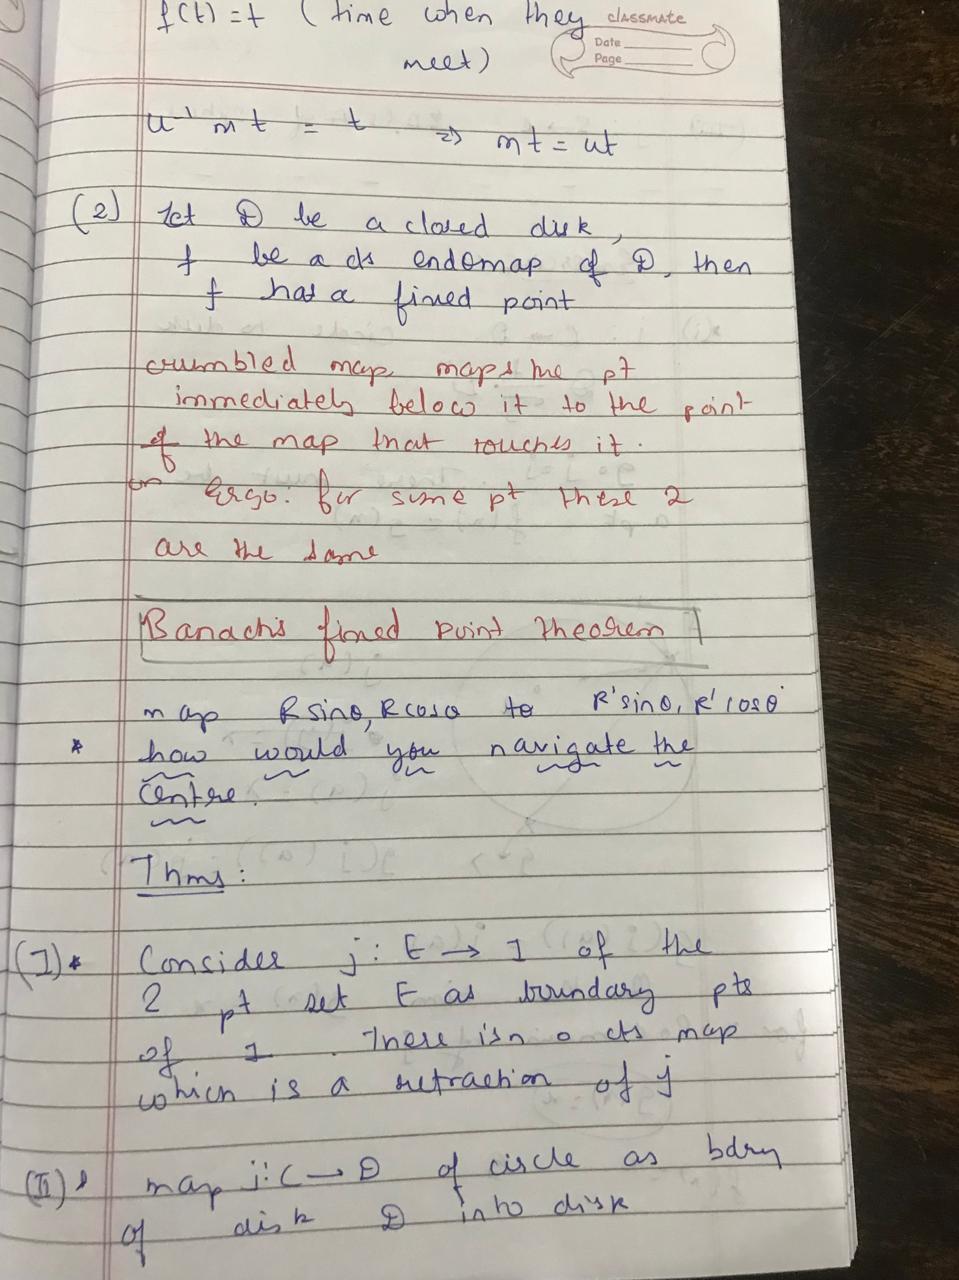 f(t) = t ( time when they
classmate
Date
Page
meet)
u⁻¹ m t = t ⇒ mt = ut
(2) Let D be a closed disk,
f be a cts endomap of D, then
f has a fixed point
crumbled map, maps the pt
immediately below it to the point
of the map that touches it.
Ergo. for some pt these 2
are the same
Banach's fixed point theorem
map R sinθ, R cosθ to R' sinθ, R' cosθ
* how would you navigate the
centre.
Thms:
(I) * Consider j: E → I of the
2 pt set E as boundary pts
of I. There is no cts map
which is a retraction of j
(II) map j: C → D of circle as bdry
of disk D into disk